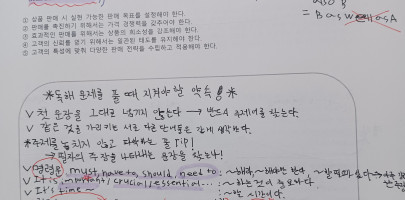 as B
= B as w as A
① 상품 판매 시 실현 가능한 판매 목표를 설정해야 한다.
② 판매를 촉진하기 위해서는 가격 경쟁력을 갖추어야 한다.
③ 효과적인 판매를 위해서는 상품의 희소성을 강조해야 한다.
④ 고객의 신뢰를 얻기 위해서는 일관된 태도를 유지해야 한다.
⑤ 고객의 특성에 맞춰 다양한 판매 전략을 수립하고 적용해야 한다.
※독해 문제를 풀 때 지켜야할 약속!※
V 첫 문장을 그대로 넘기지 않는다 → 반드시 주제어를 찾는다.
V 같은 것을 가리키는 서로 다른 단어들은 같게 생각한다.
※주제를 놓치지 않고 파악하는 꿀 TIP!
→ 필자의 주장을 나타내는 문장을 찾는다!
V 명령문, must, have to, should, need to : ~해라, ~해야만 한다, ~할 필요가 있다 →
V It is important / crucial / essential ... : ~하는 것이 중요하다.
V It's time ~ : ~할 시간이다.